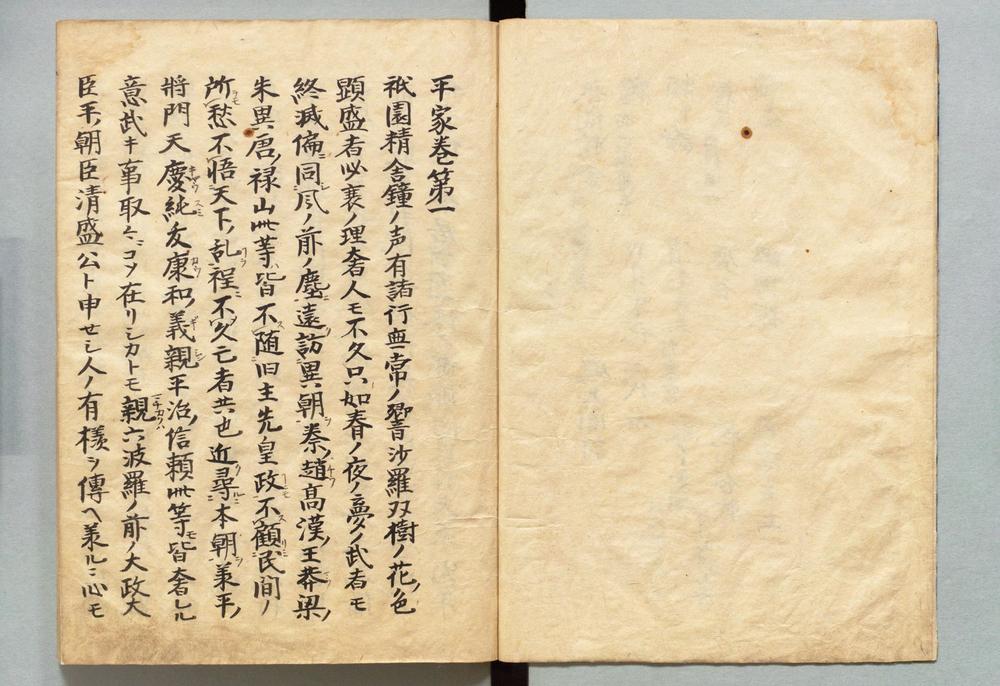 平家巻第一
祇園精舎鐘ノ声有諸行無常ノ響沙羅双樹ノ花ノ色
顕盛者必衰ノ理奢人モ不久只如春ノ夜ノ夢ノ武者モ
終滅偏同风ノ前ノ塵遠訪異朝秦ノ趙高漢ノ王莽梁ノ
朱异唐ノ禄山此等皆不随旧主先皇政不顧民間ノ
所愁不悟天下ノ乱程不久亡者共也近尋本朝承平ノ
將門天慶純友康和ノ義親平治ノ信頼此等皆奢レル
意武キ事取々ニコソ在リシカトモ親六波羅ノ前ノ大政大
臣平ノ朝臣清盛公ト申セシ人ノ有様ヲ傳ヘ承ルニ心モ